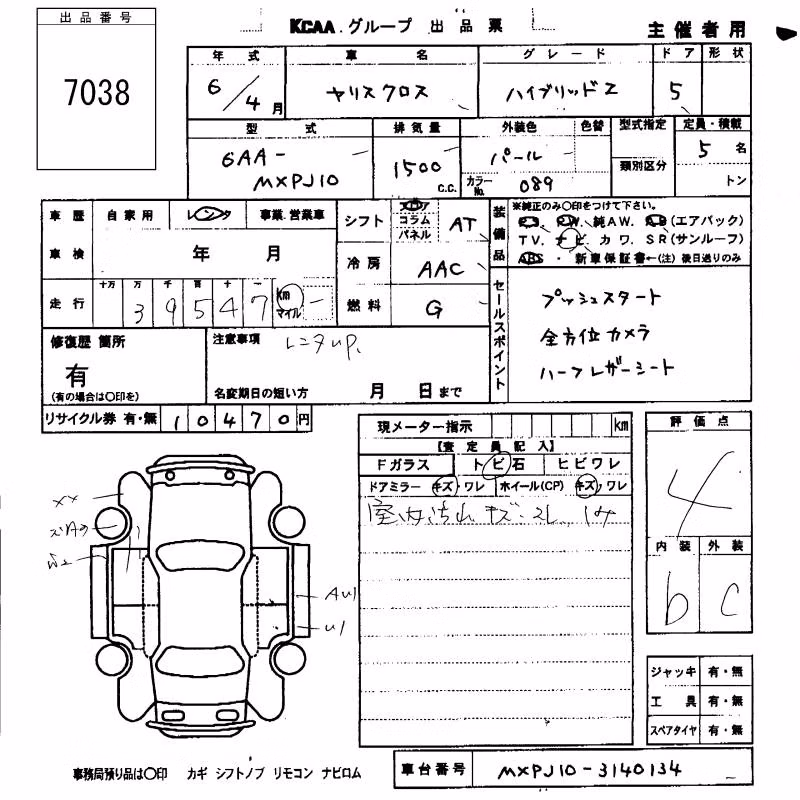 出品番号
7038
KCAA.グループ 出品票
主催者用
年式 車名 グレード ドア 形状
6/4月 ヤリスクロス ハイブリッドZ 5
型式 排気量 外装色 色替 型式指定 定員・積載
6AA-
MXPJ10
1500 c.c.
パール
カラーNo. 089
類別区分
5名
トン
車歴 自家用 レンタ 事業.営業車
車検 年 月
走行 十万 万 千 百 十 一
39547 km マイル
シフト コラム パネル AT
冷房 AAC
燃料 G
装備品
※純正のみ○印をつけて下さい。
P.S. P.W. 純AW. A.B(エアバック)
TV. ナビ. カワ. SR(サンルーフ)
ABS ・ 新車保証書←(注) 後日送りのみ
セールスポイント
プッシュスタート
全方位カメラ
ハーフレザーシート
修復歴 箇所
有
(有の場合は○印を)
注意事項 レンタup.
名変期日の短い方 月 日まで
リサイクル券 有・無 10470円
現メーター指示 km
【査定員記入】
Fガラス トビ石 ヒビワレ
ドアミラー キズ・ワレ ホイール(CP) キズ・ワレ
室内汚れ キズ・スレ
評価点
4
内装 外装
b C
XX
A41
U1
ジャッキ 有・無
工具 有・無
スペアタイヤ 有・無
事務局預り品は○印 カギ シフトノブ リモコン ナビロム
車台番号 MXPJ10-3140134